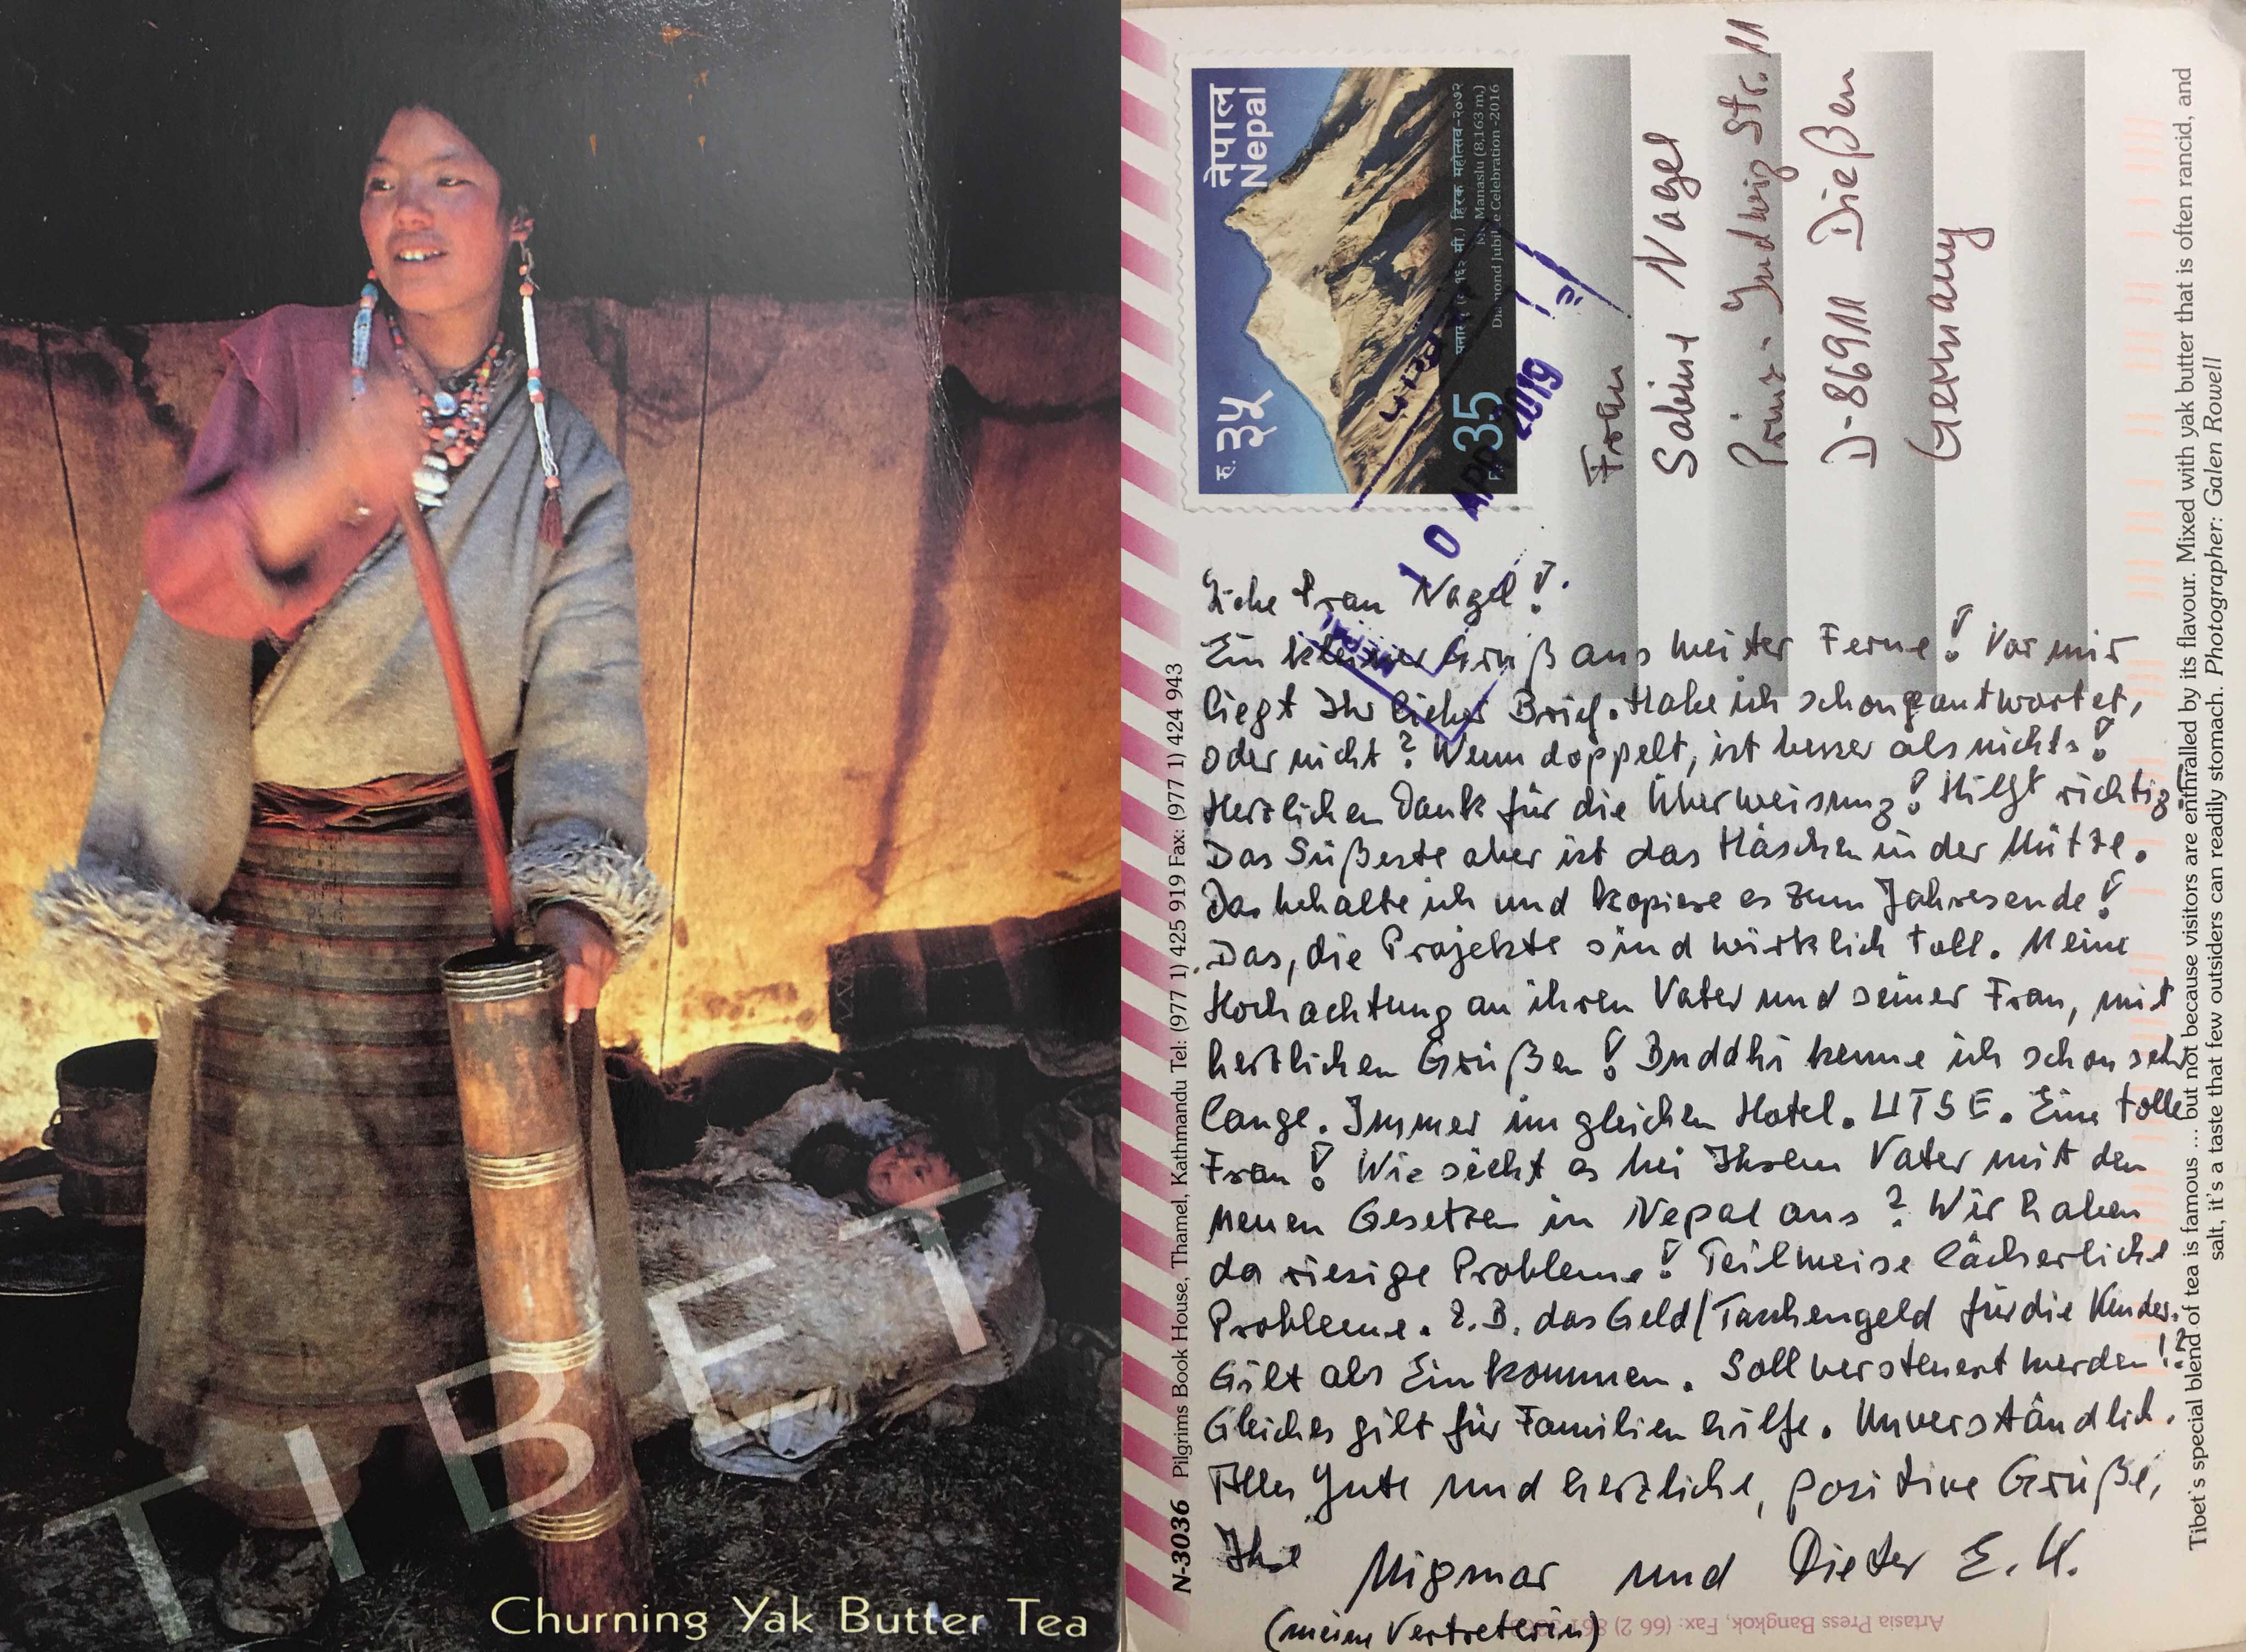 TIBET
Churning Yak Butter Tea
नेपाल
Nepal
रु. ३५
Mt. Manaslu (8,163 m.)
Diamond Jubilee Celebration -2016
35
10 APR 2019
NEPAL
Frau
Sabine Nagel
Prinz-Ludwig-Str. 11
D-86911 Dießen
Germany
Liebe Frau Nagel!
Ein kleiner Gruß aus weiter Ferne! Vor mir
liegt Ihr lieber Brief. Habe ich schon geantwortet,
oder nicht? Wenn doppelt, ist besser als nichts!
Herzlichen Dank für die Überweisung! Hilft richtig
Das Süßeste aber ist das Häschen in der Mütze.
Das behalte ich und kopiere es zum Jahresende!
Das, die Projekte sind wirklich toll. Meine
Hochachtung an ihren Vater und seiner Frau, mit
herzlichen Grüßen! Buddhi kenne ich schon sehr
lange. Immer im gleichen Hotel. UTSE. Eine tolle
Frau! Wie sieht es bei Ihrem Vater mit den
neuen Gesetzen in Nepal aus? Wir haben
da riesige Probleme! Teilweise lächerliche
Probleme. Z.B. das Geld/Taschengeld für die Kinder.
Gilt als Einkommen. Soll versteuert werden!?
Gleiches gilt für Familienhilfe. Unverständlich.
Alles Gute und herzliche, positive Grüße,
Ihre Migmar und Dieter E. K.
(meine Vertreterin)
N-3036 Pilgrims Book House, Thamel, Kathmandu Tel: (977 1) 425 919 Fax: (977 1) 424 943
Tibet's special blend of tea is famous ... but not because visitors are enthralled by its flavour. Mixed with yak butter that is often rancid, and
salt, it's a taste that few outsiders can readily stomach. Photographer: Galen Rowell
Artasia Press Bangkok, Fax: (66 2)